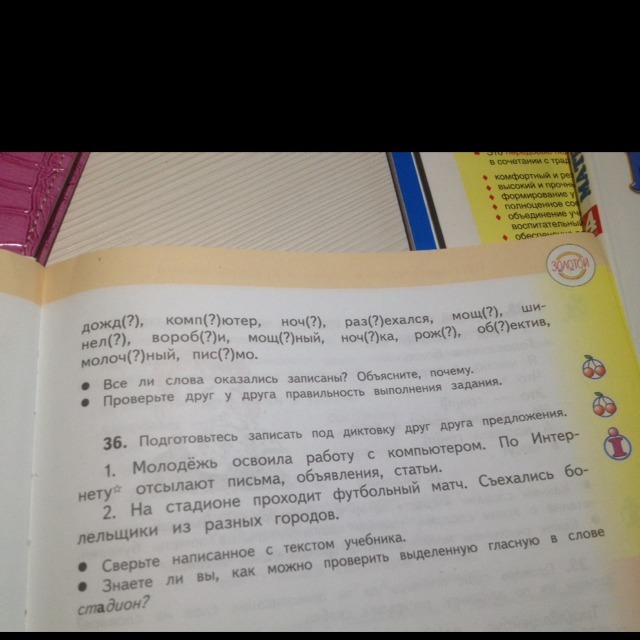 в сочетании с
комфортный и
высокий и
формирование
полноценное
объединение
МАТ
4
ЗОЛОТОЙ
дожд(?), комп(?)ютер, ноч(?), раз(?)ехался, мощ(?), ши-
нел(?), вороб(?)и, мощ(?)ный, ноч(?)ка, рож(?), об(?)ектив,
молоч(?)ный, пис(?)мо.
● Все ли слова оказались записаны? Объясните, почему.
● Проверьте друг у друга правильность выполнения задания.
36. Подготовьтесь записать под диктовку друг друга предложения.
1. Молодёжь освоила работу с компьютером. По Интер-
нету☆ отсылают письма, объявления, статьи.
2. На стадионе проходит футбольный матч. Съехались бо-
лельщики из разных городов.
● Сверьте написанное с текстом учебника.
● Знаете ли вы, как можно проверить выделенную гласную в слове
стадион?